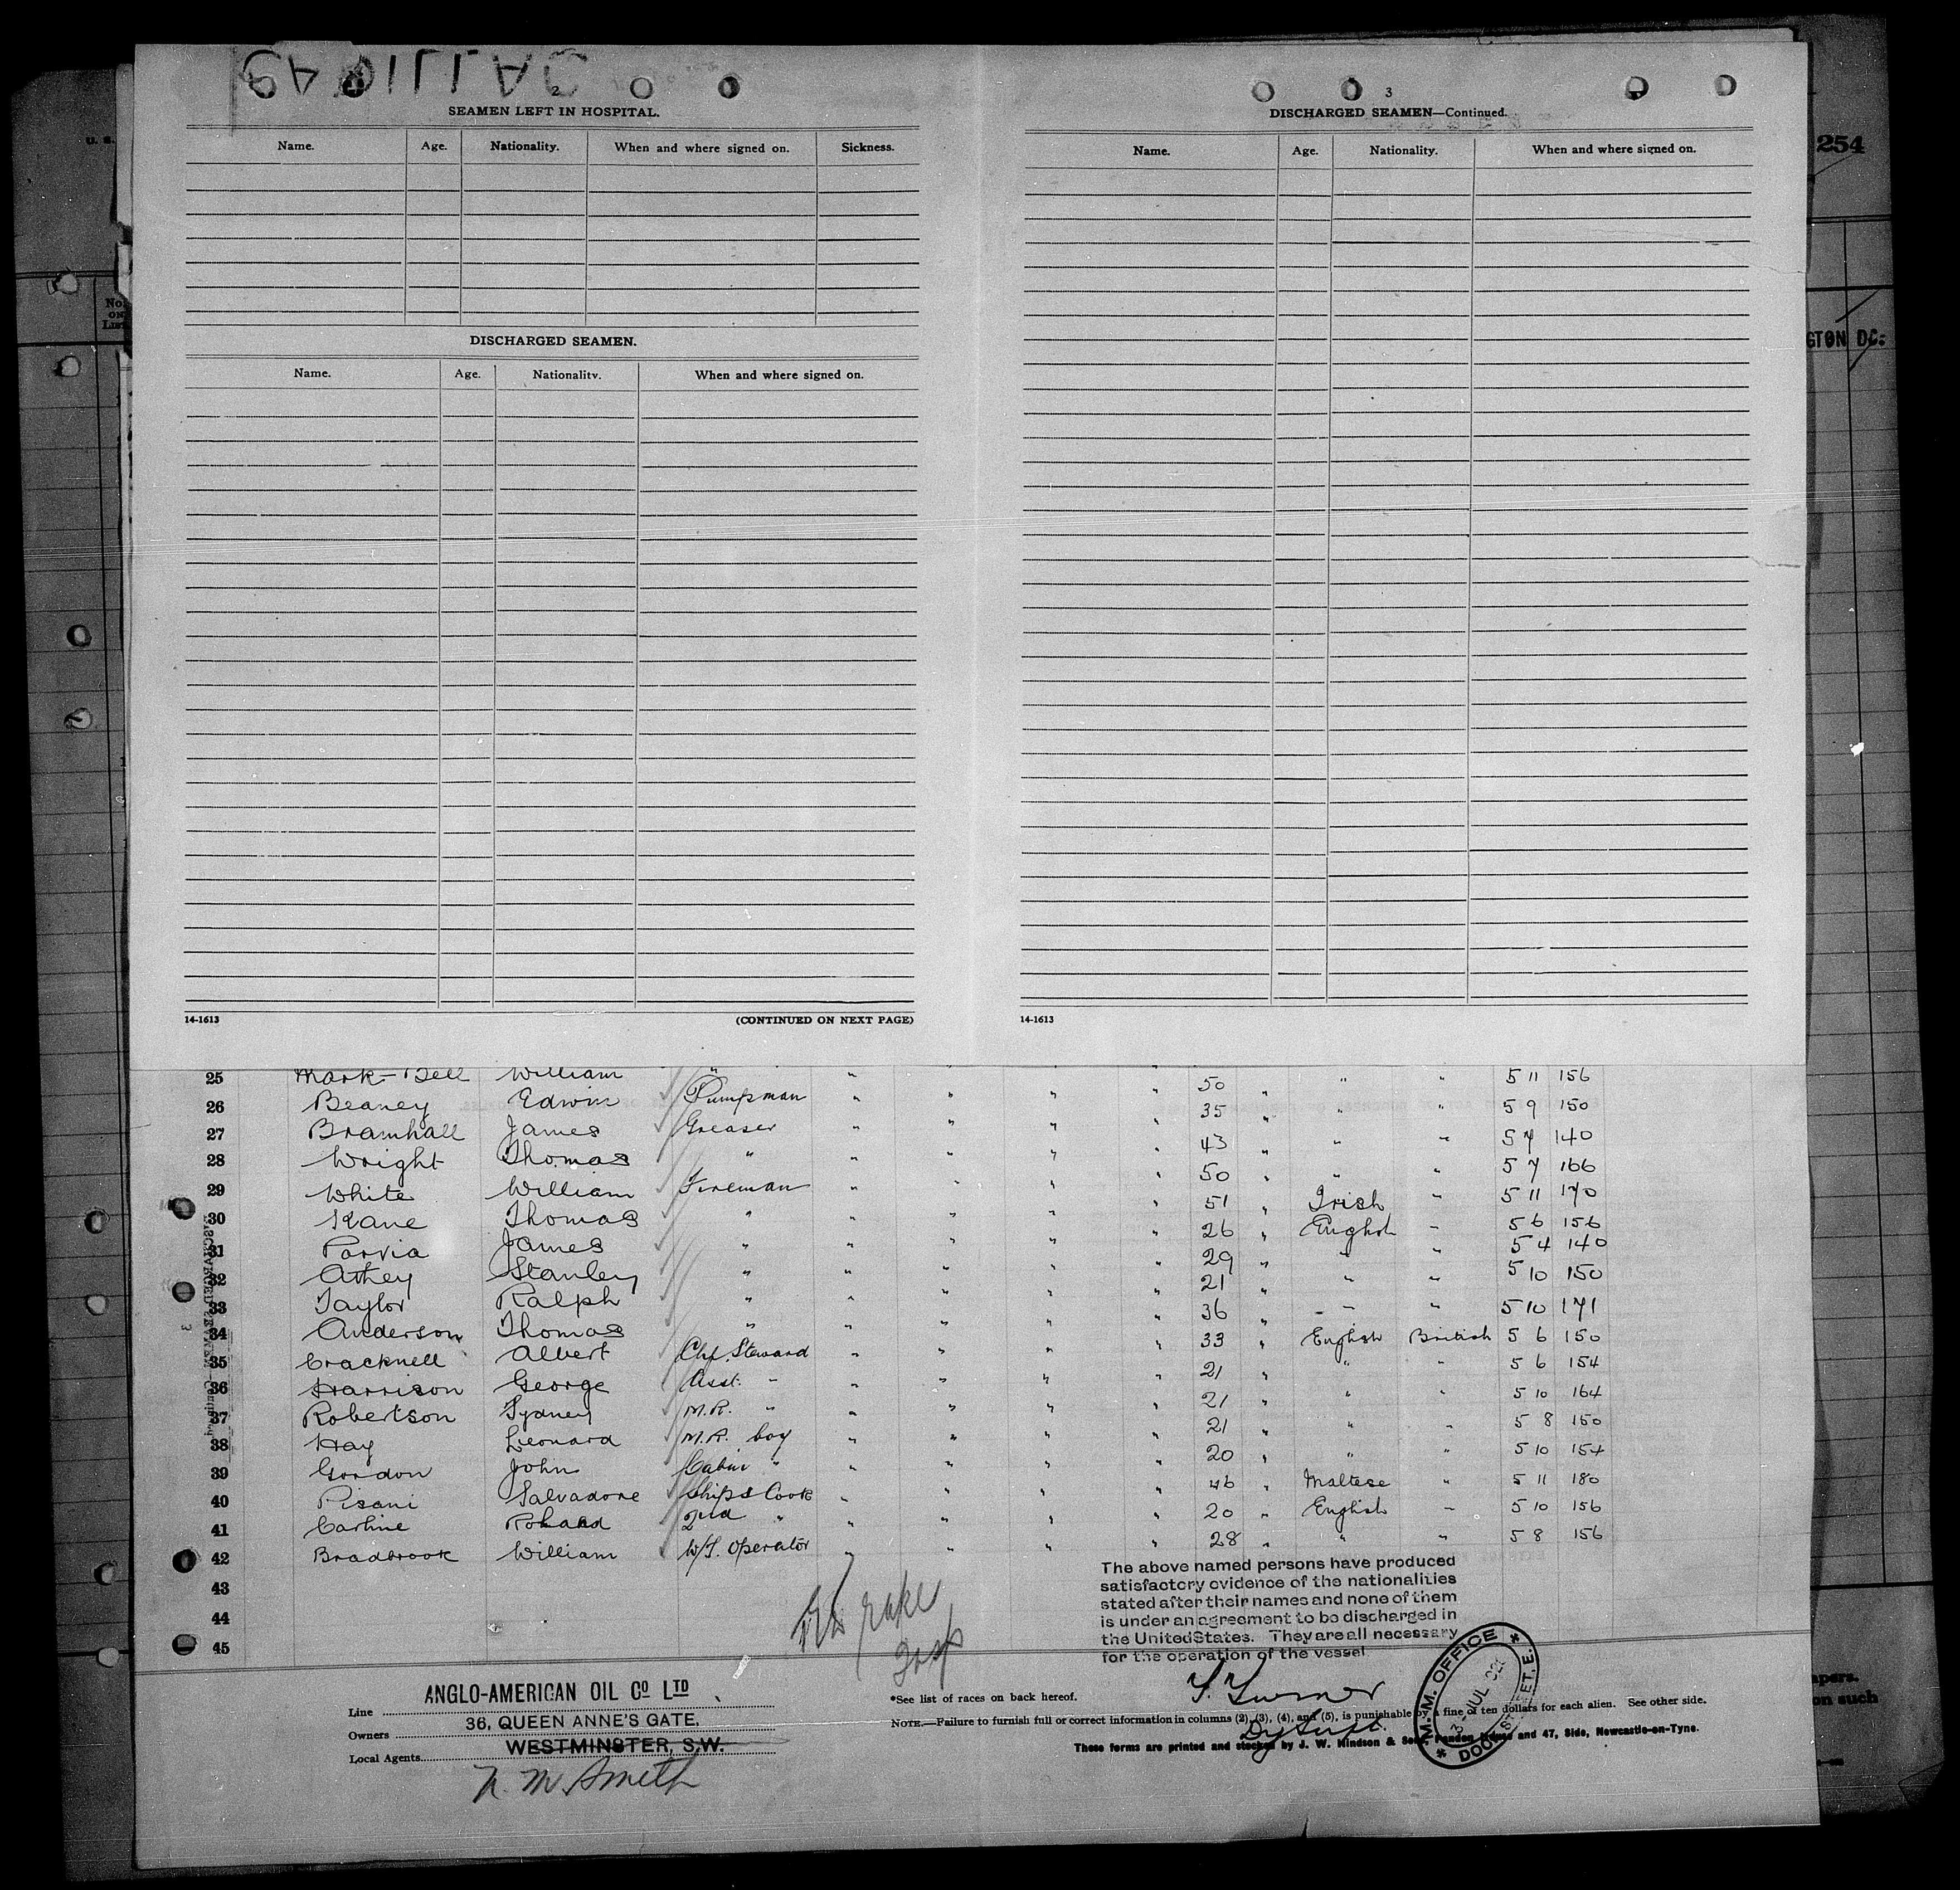 CADILLAC
2
SEAMEN LEFT IN HOSPITAL.
Name. Age. Nationality. When and where signed on. Sickness.
DISCHARGED SEAMEN.
Name. Age. Nationality. When and where signed on.
14-1613 (CONTINUED ON NEXT PAGE)
3
DISCHARGED SEAMEN—Continued.
Name. Age. Nationality. When and where signed on.
14-1613
U. S.
254
No. ON LIST
GTON DC:
25 Mark-Bell William " " " " " 50 " " " 5 11 156
26 Beaney Edwin Pumpman " " " " 35 " " " 5 9 150
27 Bramhall James Greaser " " " " 43 " " " 5 7 140
28 Wright Thomas " " " " " 50 " " " 5 7 166
29 White William Fireman " " " " 51 " Irish " 5 11 170
30 Kane Thomas " " " " " 26 " English " 5 6 156
31 Parvia James " " " " " 29 " " " 5 4 140
32 Athey Stanley " " " " " 21 " " " 5 10 150
33 Taylor Ralph " " " " " 36 " " " 5 10 171
34 Anderson Thomas " " " " " 33 " English British 5 6 150
35 Cracknell Albert Chf. Steward " " " " 21 " " " 5 6 154
36 Harrison George Asst. " " " " " 21 " " " 5 10 164
37 Robertson Sydney M.R. " " " " " 21 " " " 5 8 150
38 Hay Leonard M.R. boy " " " " 20 " " " 5 10 154
39 Gordon John Cabin " " " " " 46 " Maltese " 5 11 180
40 Pisani Salvadore Ships Cook " " " " 20 " English " 5 10 156
41 Carline 2nd " " " " " 28 " " " 5 8 156
42 Bradbrook William W/T. Operator " " " "
43
44
45
The above named persons have produced
satisfactory evidence of the nationalities
stated after their names and none of them
is under an agreement to be discharged in
the United States. They are all necessary
for the operation of the vessel
T. Turner
Dy Supt.
M.M. OFFICE
3-JUL
DOCK STREET, E.
Line ANGLO-AMERICAN OIL CO LTD
Owners 36, QUEEN ANNE'S GATE,
Local Agents WESTMINSTER, S.W.
N. M. Smith
*See list of races on back hereof.
NOTE.—Failure to furnish full or correct information in columns (2), (3), (4), and (5), is punishable by a fine of ten dollars for each alien. See other side.
These forms are printed and stocked by J. W. Hindson & Sons, and 47, Side, Newcastle-on-Tyne.
apers.
on such